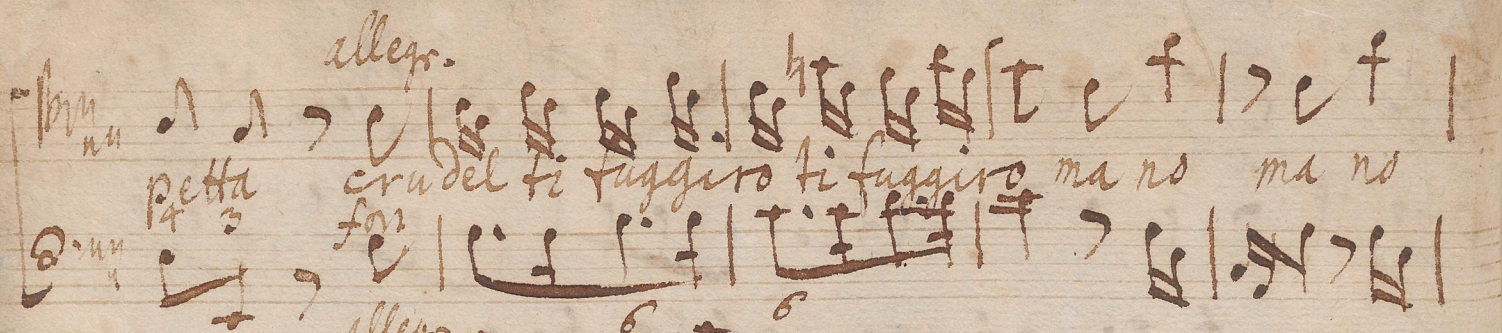 allegr.
petta crudel ti fuggiro ti fuggiro ma no ma no
4 3 for
allegr.
6 6